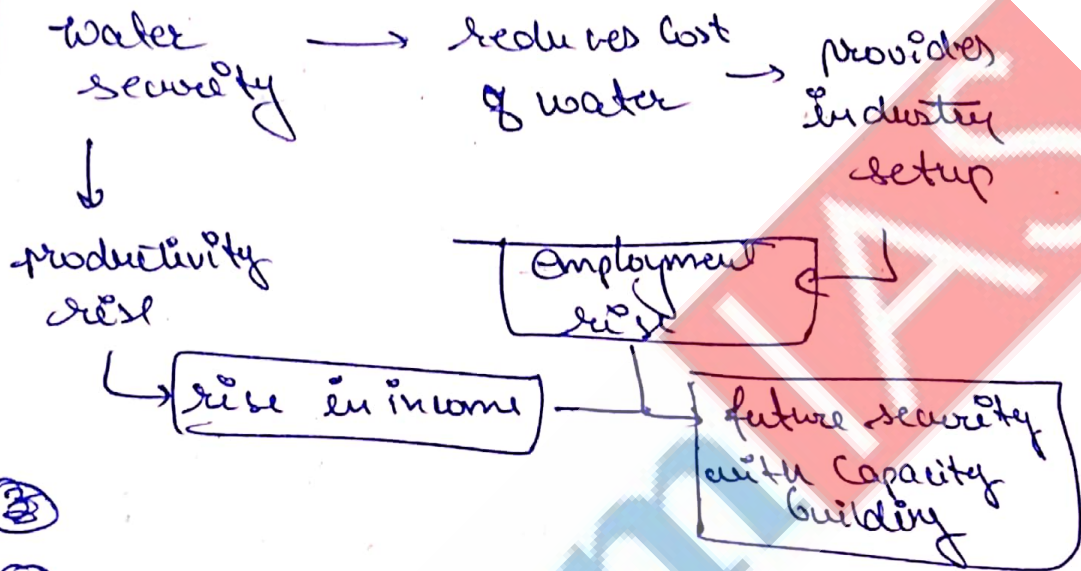 Water
security
reduces Cost
of water
provides
industry
setup
productivity
rise
employment
rise
rise in income
future security
with Capacity
building
3
IAS